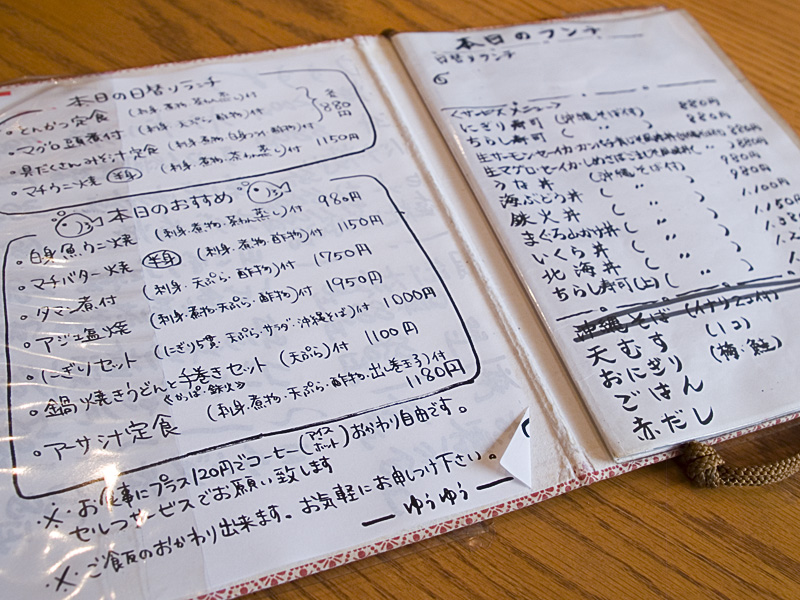 本日の日替ランチ
・とんかつ定食 (刺身・煮物・茶わん蒸し)付
・マグロ頭煮付 (刺身・天ぷら・酢物)付 各880円
・具だくさんみそ汁定食 (刺身・煮物)付
・マチウニ焼 半身 (刺身・煮物・茶わん蒸し) 1150円
本日のおすすめ
・白身魚ウニ焼 (刺身・煮物・茶わん蒸し)付 980円
・マチバター焼 半身 (刺身・煮物・酢物)付 1150円
・タマン煮付 (刺身・天ぷら・酢物)付 1750円
・アジ塩焼 (刺身・煮物・天ぷら・酢物)付 1950円
・にぎりセット (にぎり5貫・天ぷら・サラダ・沖縄そば)付 1000円
・鍋焼きうどんと手巻きセット (天ぷら)付 1100円
《かっぱ・鉄火》
・アーサ汁定食 (刺身・煮物・天ぷら・酢物・出し巻玉子)付 1180円
・※・お食事にプラス120円でコーヒー(アイス ホット)おかわり自由です。
セルフサービスでお願い致します
・※・ご飯のおかわり出来ます。お気軽にお申しつけ下さい。
ー ゆうゆう ー
本日のランチ
日替りランチ
<サービスメニュー>
にぎり寿司 (沖縄そば付) 880円
ちらし寿司 ( 〃 )
生サーモン・セイカ 880円
生マグロ・セイカ・しめさば 880円
うな丼 (沖縄そば付) 980円
海ぶどう丼 ( 〃 ) 980円
鉄火丼 ( 〃 ) 1.100円
まぐろ山かけ丼 ( 〃 )
いくら丼 ( 〃 )
北海丼 ( 〃 )
ちらし寿司(上) ( 〃
沖縄そば
天むす (1コ)
おにぎり (梅・鮭)
ごはん
赤だし